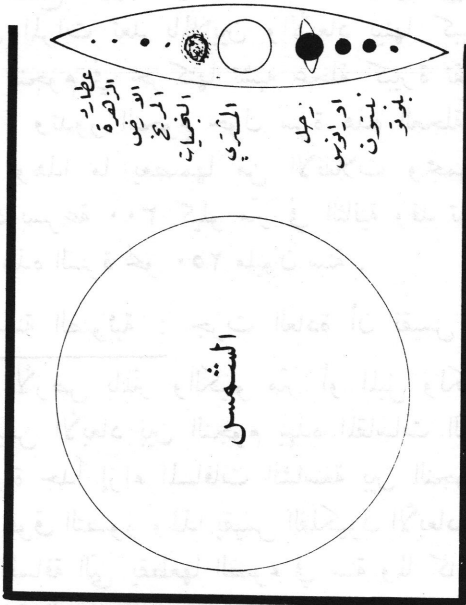 عطارد
الزهرة
الارض
المريخ
النجيمات
المشتري
زحل
اورانوس
نبتون
بلوتو
الشمس